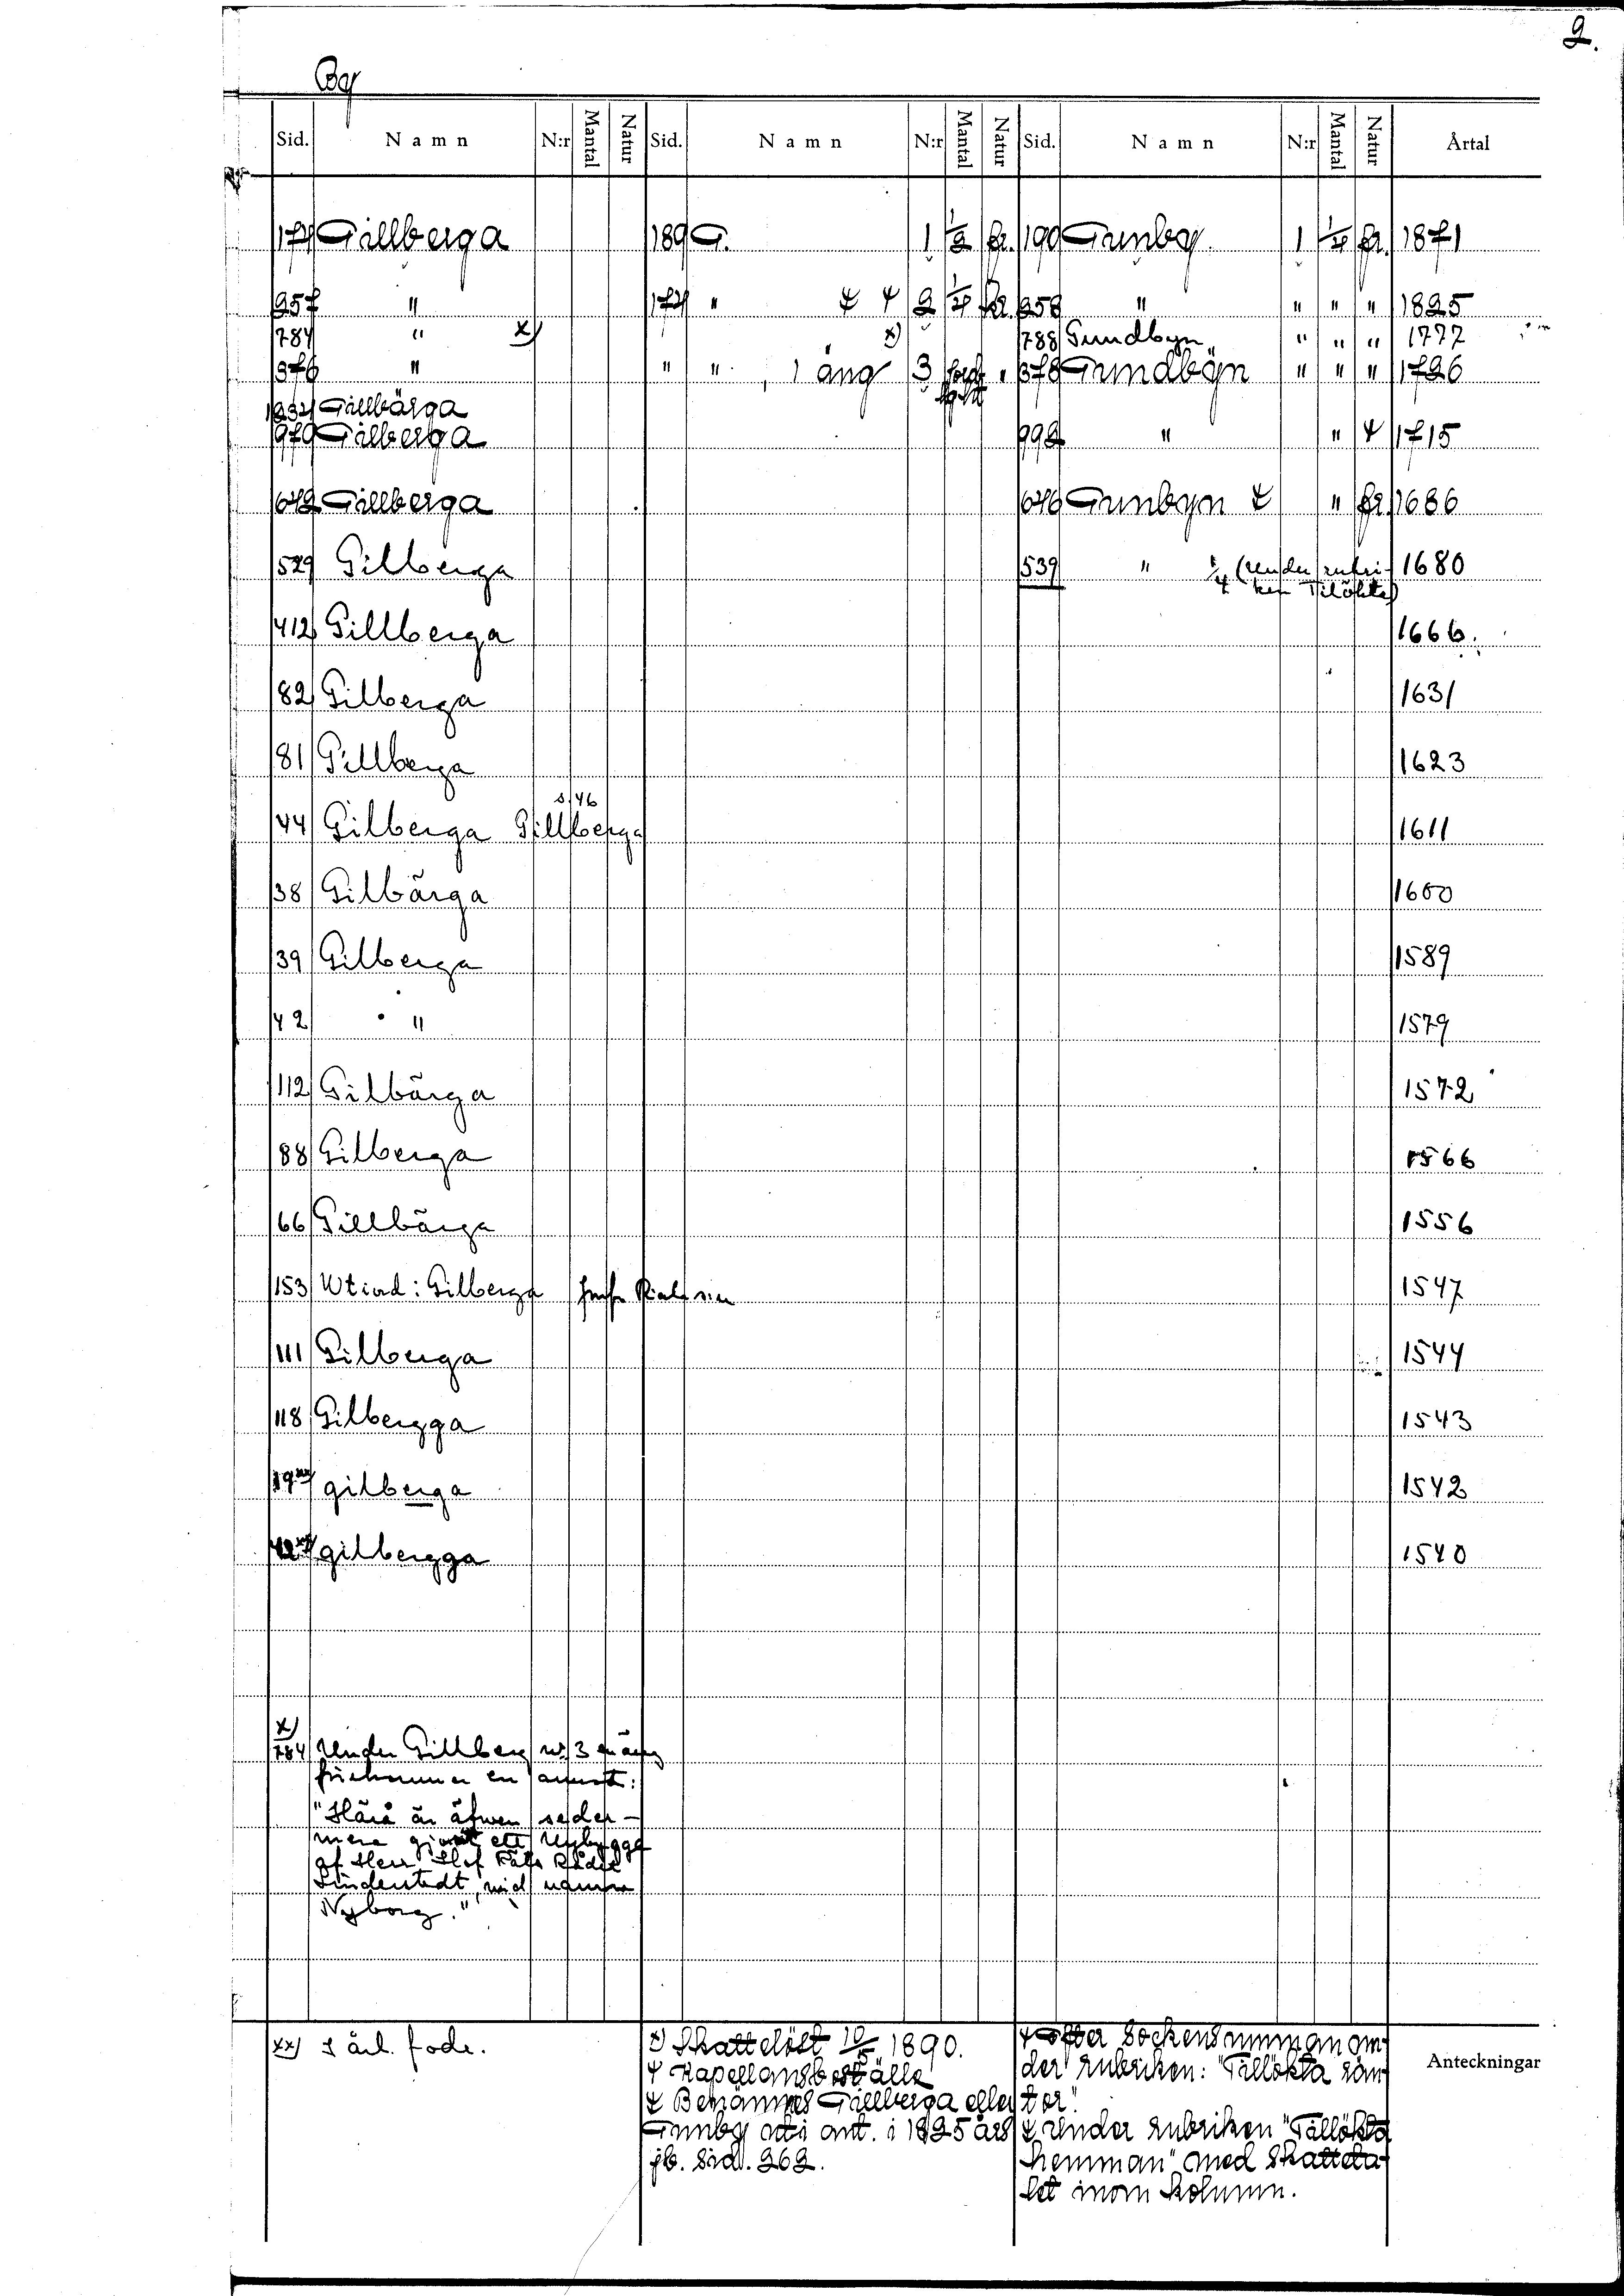 2.
By
Sid. Namn N:r Mantal Natur Sid. Namn N:r Mantal Natur Sid. Namn N:r Mantal Natur Årtal
174 Gillberga 189 G. 1 1/2 fr. 190 Gunby 1 1/4 fr. 1871
257 " 174 " 2 1/4 kr. 258 " " " " 1825
784 " x) x) 788 Gundbyn " " " 1777
376 " " " , 1 äng 3 " 378 Gundbÿn " " " 1726
1234 Gillbärga
970 Gilberga 992 " " 1715
642 Gillberga 646 Gunbyn " fr. 1686
529 Gilberga 539 " 1/4 (under rubri- 1680
ken Tilökte)
412 Gillberga 1666
82 Gilberga 1631
81 Gillberga 1623
s. 46
44 Gilberga Gillberga 1611
38 Gilbärga 1600
39 Gilberga 1589
42 " 1579
112 Gilbärga 1572
88 Gilberga 1566
66 Gillbärga 1556
153 Gilberga 1547
111 Gilberga 1544
118 Gilbergga 1543
19 xx) gilberga 1542
42 xx) gilbergga 1540
x)
784 Under Gillberg nr. 3 en äng
förekommer en
"Härå är äfwen seder-
mera giordt ett Nybygge
af Herr Hof Rådet
Linderstedt, wid namn
Nyborg."
xx) I årl. fodr.
x) Skattelöst 10/5 1890.
Kapellansboställe
Benämnes Gillberga eller
Gunby uti ant. i 1825 års
jb. sid. 262.
Efter sockensumman un-
der rubriken: "Tillökta rän-
tor".
Under rubriken "Tillökta
hemman" med skatteta-
let inom kolumn.
Anteckningar